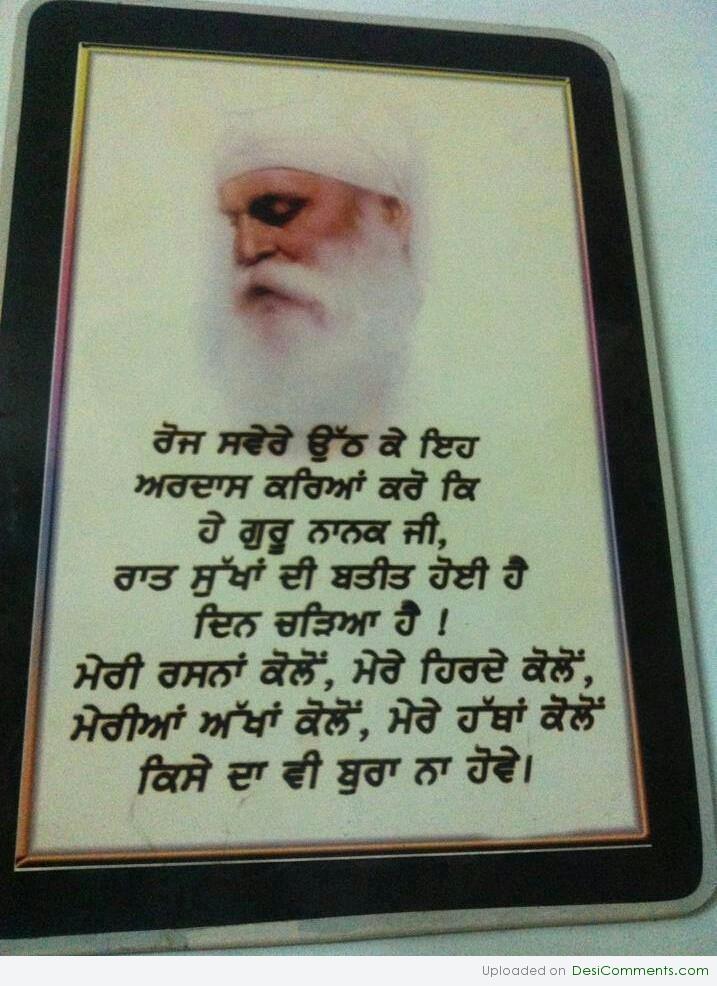 ਰੋਜ ਸਵੇਰੇ ਉੱਠ ਕੇ ਇਹ
ਅਰਦਾਸ ਕਰਿਆਂ ਕਰੋ ਕਿ
ਹੇ ਗੁਰੂ ਨਾਨਕ ਜੀ,
ਰਾਤ ਸੁੱਖਾਂ ਦੀ ਬਤੀਤ ਹੋਈ ਹੈ
ਦਿਨ ਚੜਿਆ ਹੈ !
ਮੇਰੀ ਰਸਨਾਂ ਕੋਲੋਂ, ਮੇਰੇ ਹਿਰਦੇ ਕੋਲੋਂ,
ਮੇਰੀਆਂ ਅੱਖਾਂ ਕੋਲੋਂ, ਮੇਰੇ ਹੱਥਾਂ ਕੋਲੋਂ
ਕਿਸੇ ਦਾ ਵੀ ਬੁਰਾ ਨਾ ਹੋਵੇ।
Uploaded on DesiComments.com